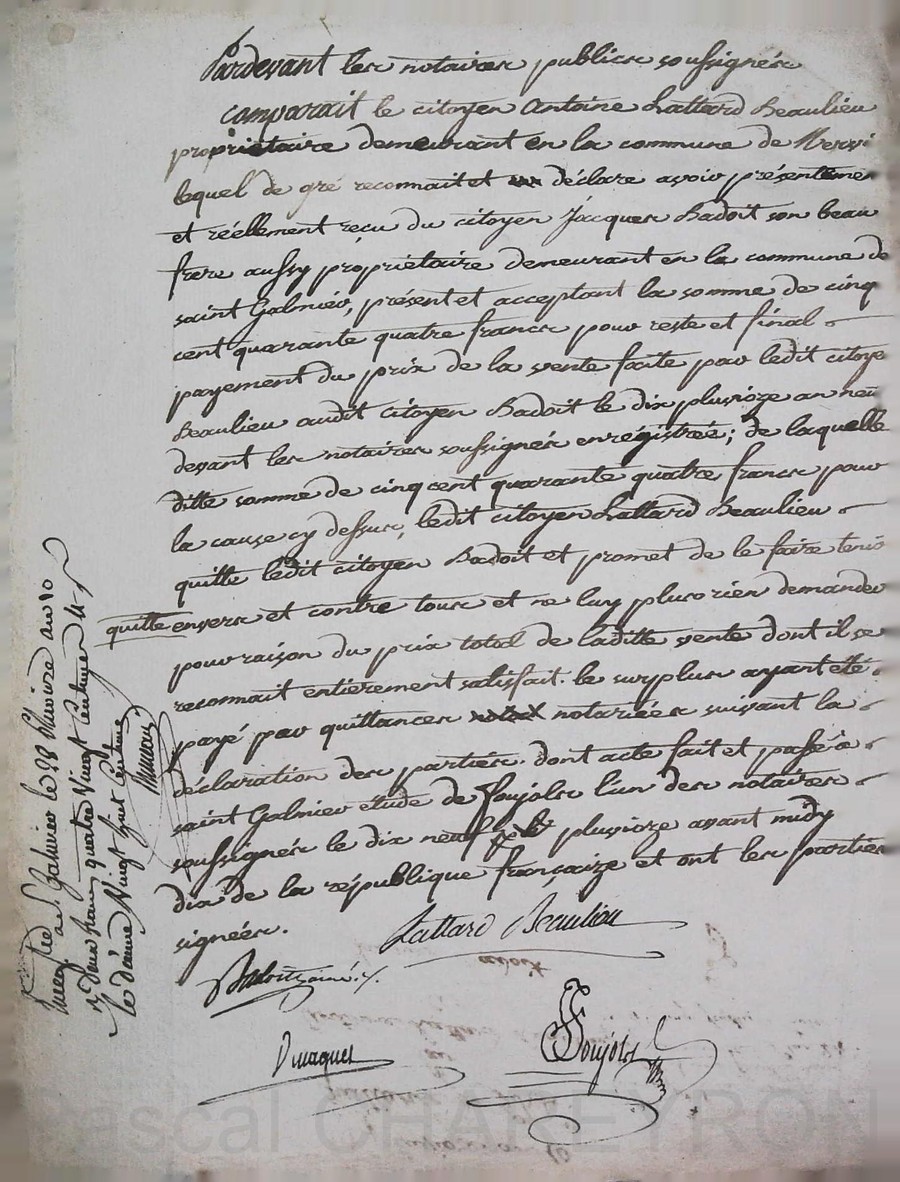 Pardevant les notaires publics soussignés
comparait le citoyen Antoine Lattard Beaulieu
propriétaire demeurant en la commune de
lequel de gré reconnait et déclare avoir présentemen
et réellement reçu du citoyen Jacques Badoit son beau
frere aussy propriétaire demeurant en la commune de
saint Galmier, présent et acceptant la somme de cinq
cent quarante quatre francs pour reste et final
payement du prix de la vente faite par ledit citoye
Beaulieu audit citoyen Badoit le dix pluvioze an neu
devant les notaires soussignés enrégistrée; de laquelle
ditte somme de cinq cent quarante quatre francs pour
la cause cy dessus, ledit citoyen Lattard Beaulieu
quitte ledit citoyen Badoit et promet de le faire tenir
quitte envers et contre tous et ne luy plus rien demander
pour raison du prix total de laditte vente dont il se
reconnait entièrement satisfait. le surplus ayant été
payé par quittances notariées suivant la
déclaration des parties. dont acte fait et passé à
saint Galmier étude de Soujols l'un des notaires
soussignés le dix neuf pluvioze avant midy
dix de la république françaize et ont les parties
signées.
Lattard Beaulieu
Badoit ainé
Dmaques
Soujols
Enregistré à St Galmier le 28 Pluvioze an 10
Deux francs quatre Vingt Centimes
le dixme Vingt huit Centime
Pascal CHAREYRON